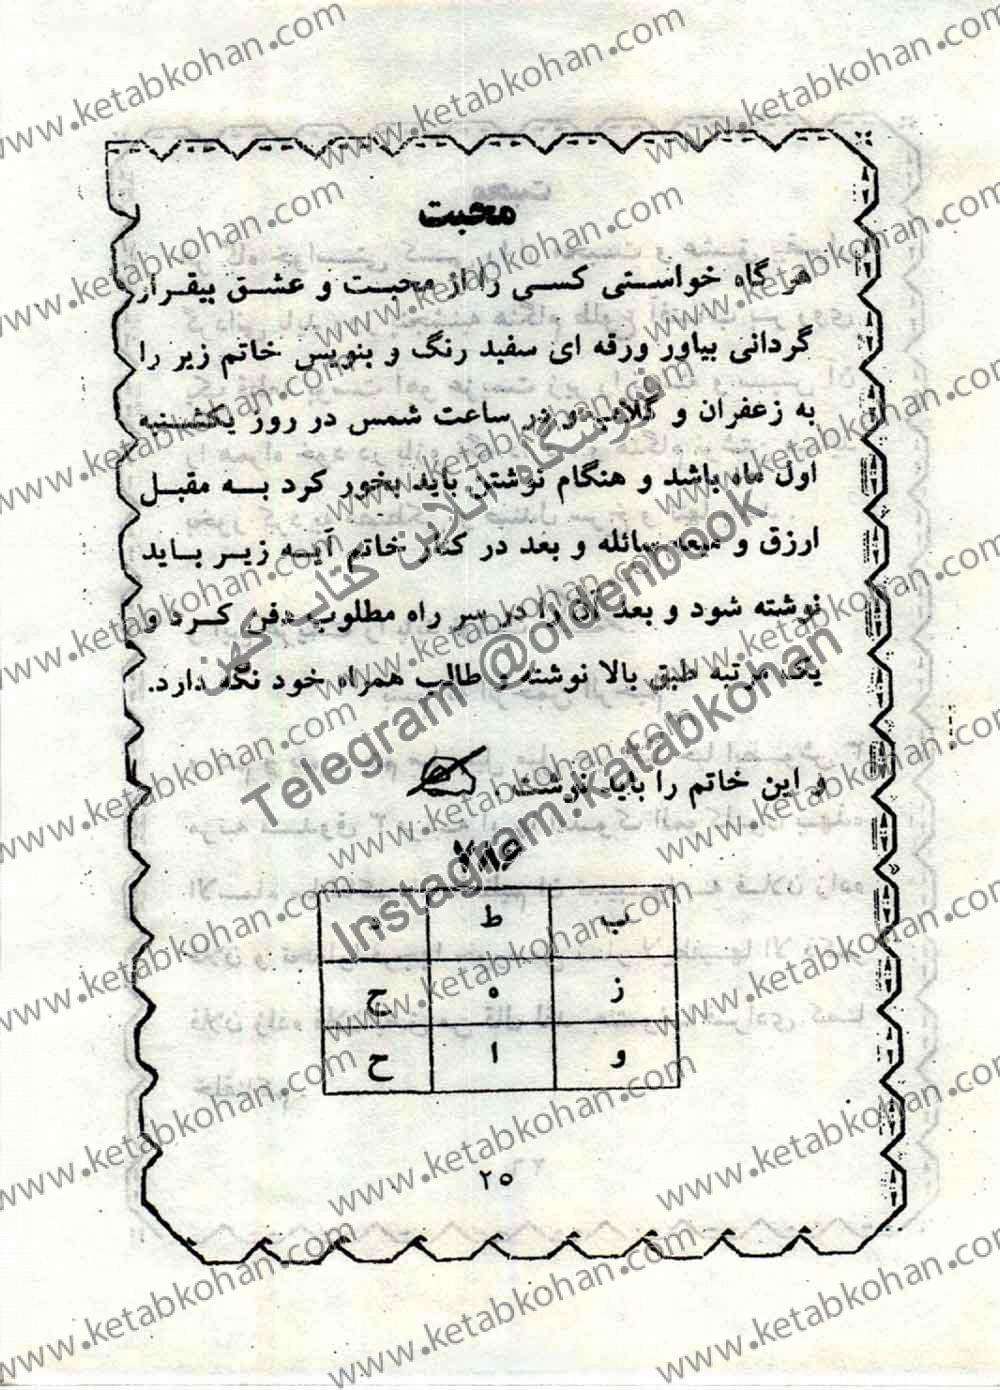 محبت
هر گاه خواستی کسی را از محبت و عشق بیقرار
گردانی بیاور ورقه ای سفید رنگ و بنویس خاتم زیر را
به زعفران و گلاب و در ساعت شمس در روز یکشنبه
اول ماه باشد و هنگام نوشتن باید بخور کرد به مقبل
ارزق و میعه سائله و بعد در کنار خاتم آیه زیر باید
نوشته شود و بعد آن را در سر راه مطلوب دفن کرد و
یک مرتبه طبق بالا نوشته و طالب همراه خود نگه دارد.
و این خاتم را باید نوشت.
۷۸۶
ب ط د
ز ه ج
و ا ح
۲۵
www.ketabkohan.com
فروشگاه آنلاین کتاب کهن
Telegram:@oldenbook
Instagram:katabkohan